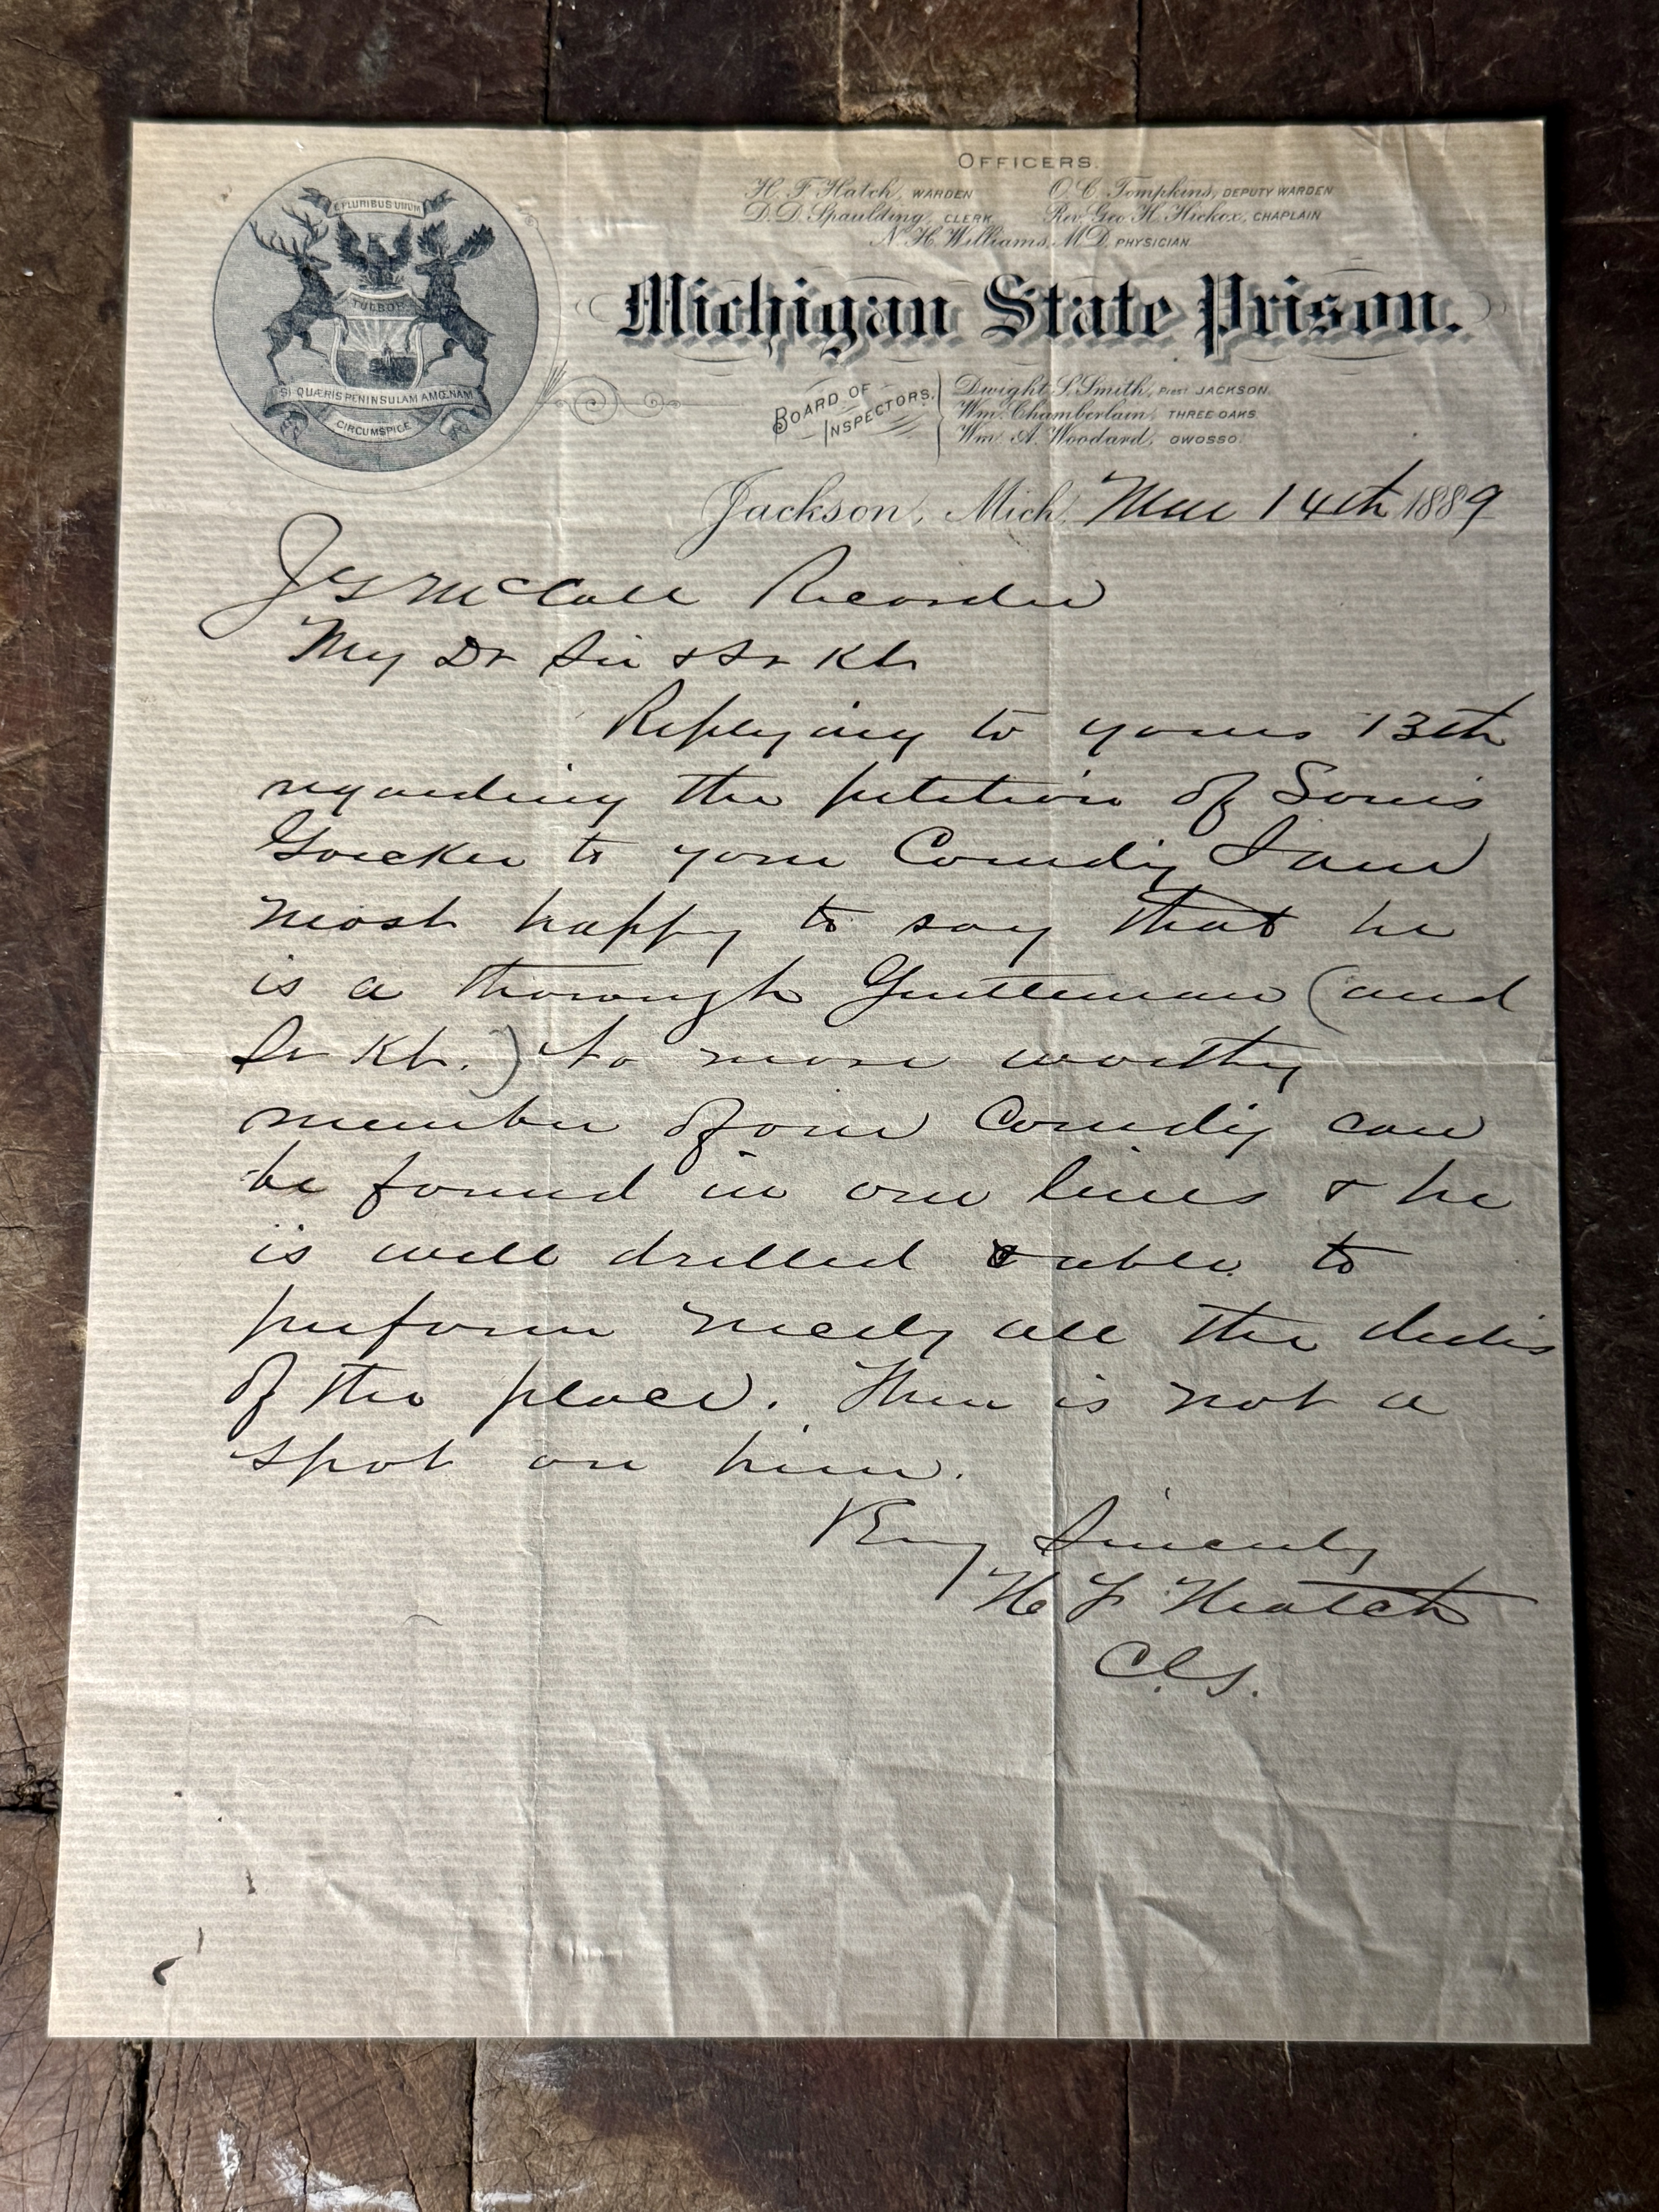 OFFICERS.
H. F. Hatch, WARDEN O. C. Tompkins, DEPUTY WARDEN
D. D. Spaulding, CLERK Rev. Geo. H. Hickox, CHAPLAIN
N. H. Williams, M.D. PHYSICIAN
E PLURIBUS UNUM
TUEBOR
SI QUÆRIS PENINSULAM AMŒNAM
CIRCUMSPICE
Michigan State Prison.
BOARD OF INSPECTORS.
Dwight S. Smith, Prest JACKSON.
Wm. Chamberlain, THREE OAKS.
Wm. A. Woodard, OWOSSO.
Jackson, Mich. Mar 14th 1889
McCall Recorder
My Dr Sir & Sr Kt
Replying to yours 13th
regarding the petition of Louis
to your Comdy I am
most happy to say that he
is a thorough Gentleman (and
Sr Kt.) No more worthy
member of our Comdy can
be found in our lines & he
is well drilled & able to
perform nearly all the duties
of the place. There is not a
spot on him.
Very Sincerely
H F Hatch